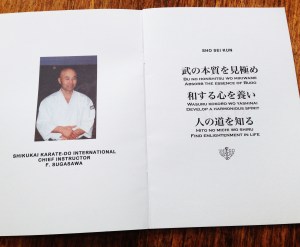 SHIKUKAI KARATE-DO INTERNATIONAL
CHIEF INSTRUCTOR
F. SUGASAWA
SHO SEI KUN
武の本質を見極め
BU NO HONSHITSU WO MIKIWAME
ABSORB THE ESSENCE OF BUDO
和する心を養い
WASURU KOKORO WO YASHINAI
DEVELOP A HARMONIOUS SPIRIT
人の道を知る
HITO NO MICHI WO SHIRU
FIND ENLIGHTENMENT IN LIFE